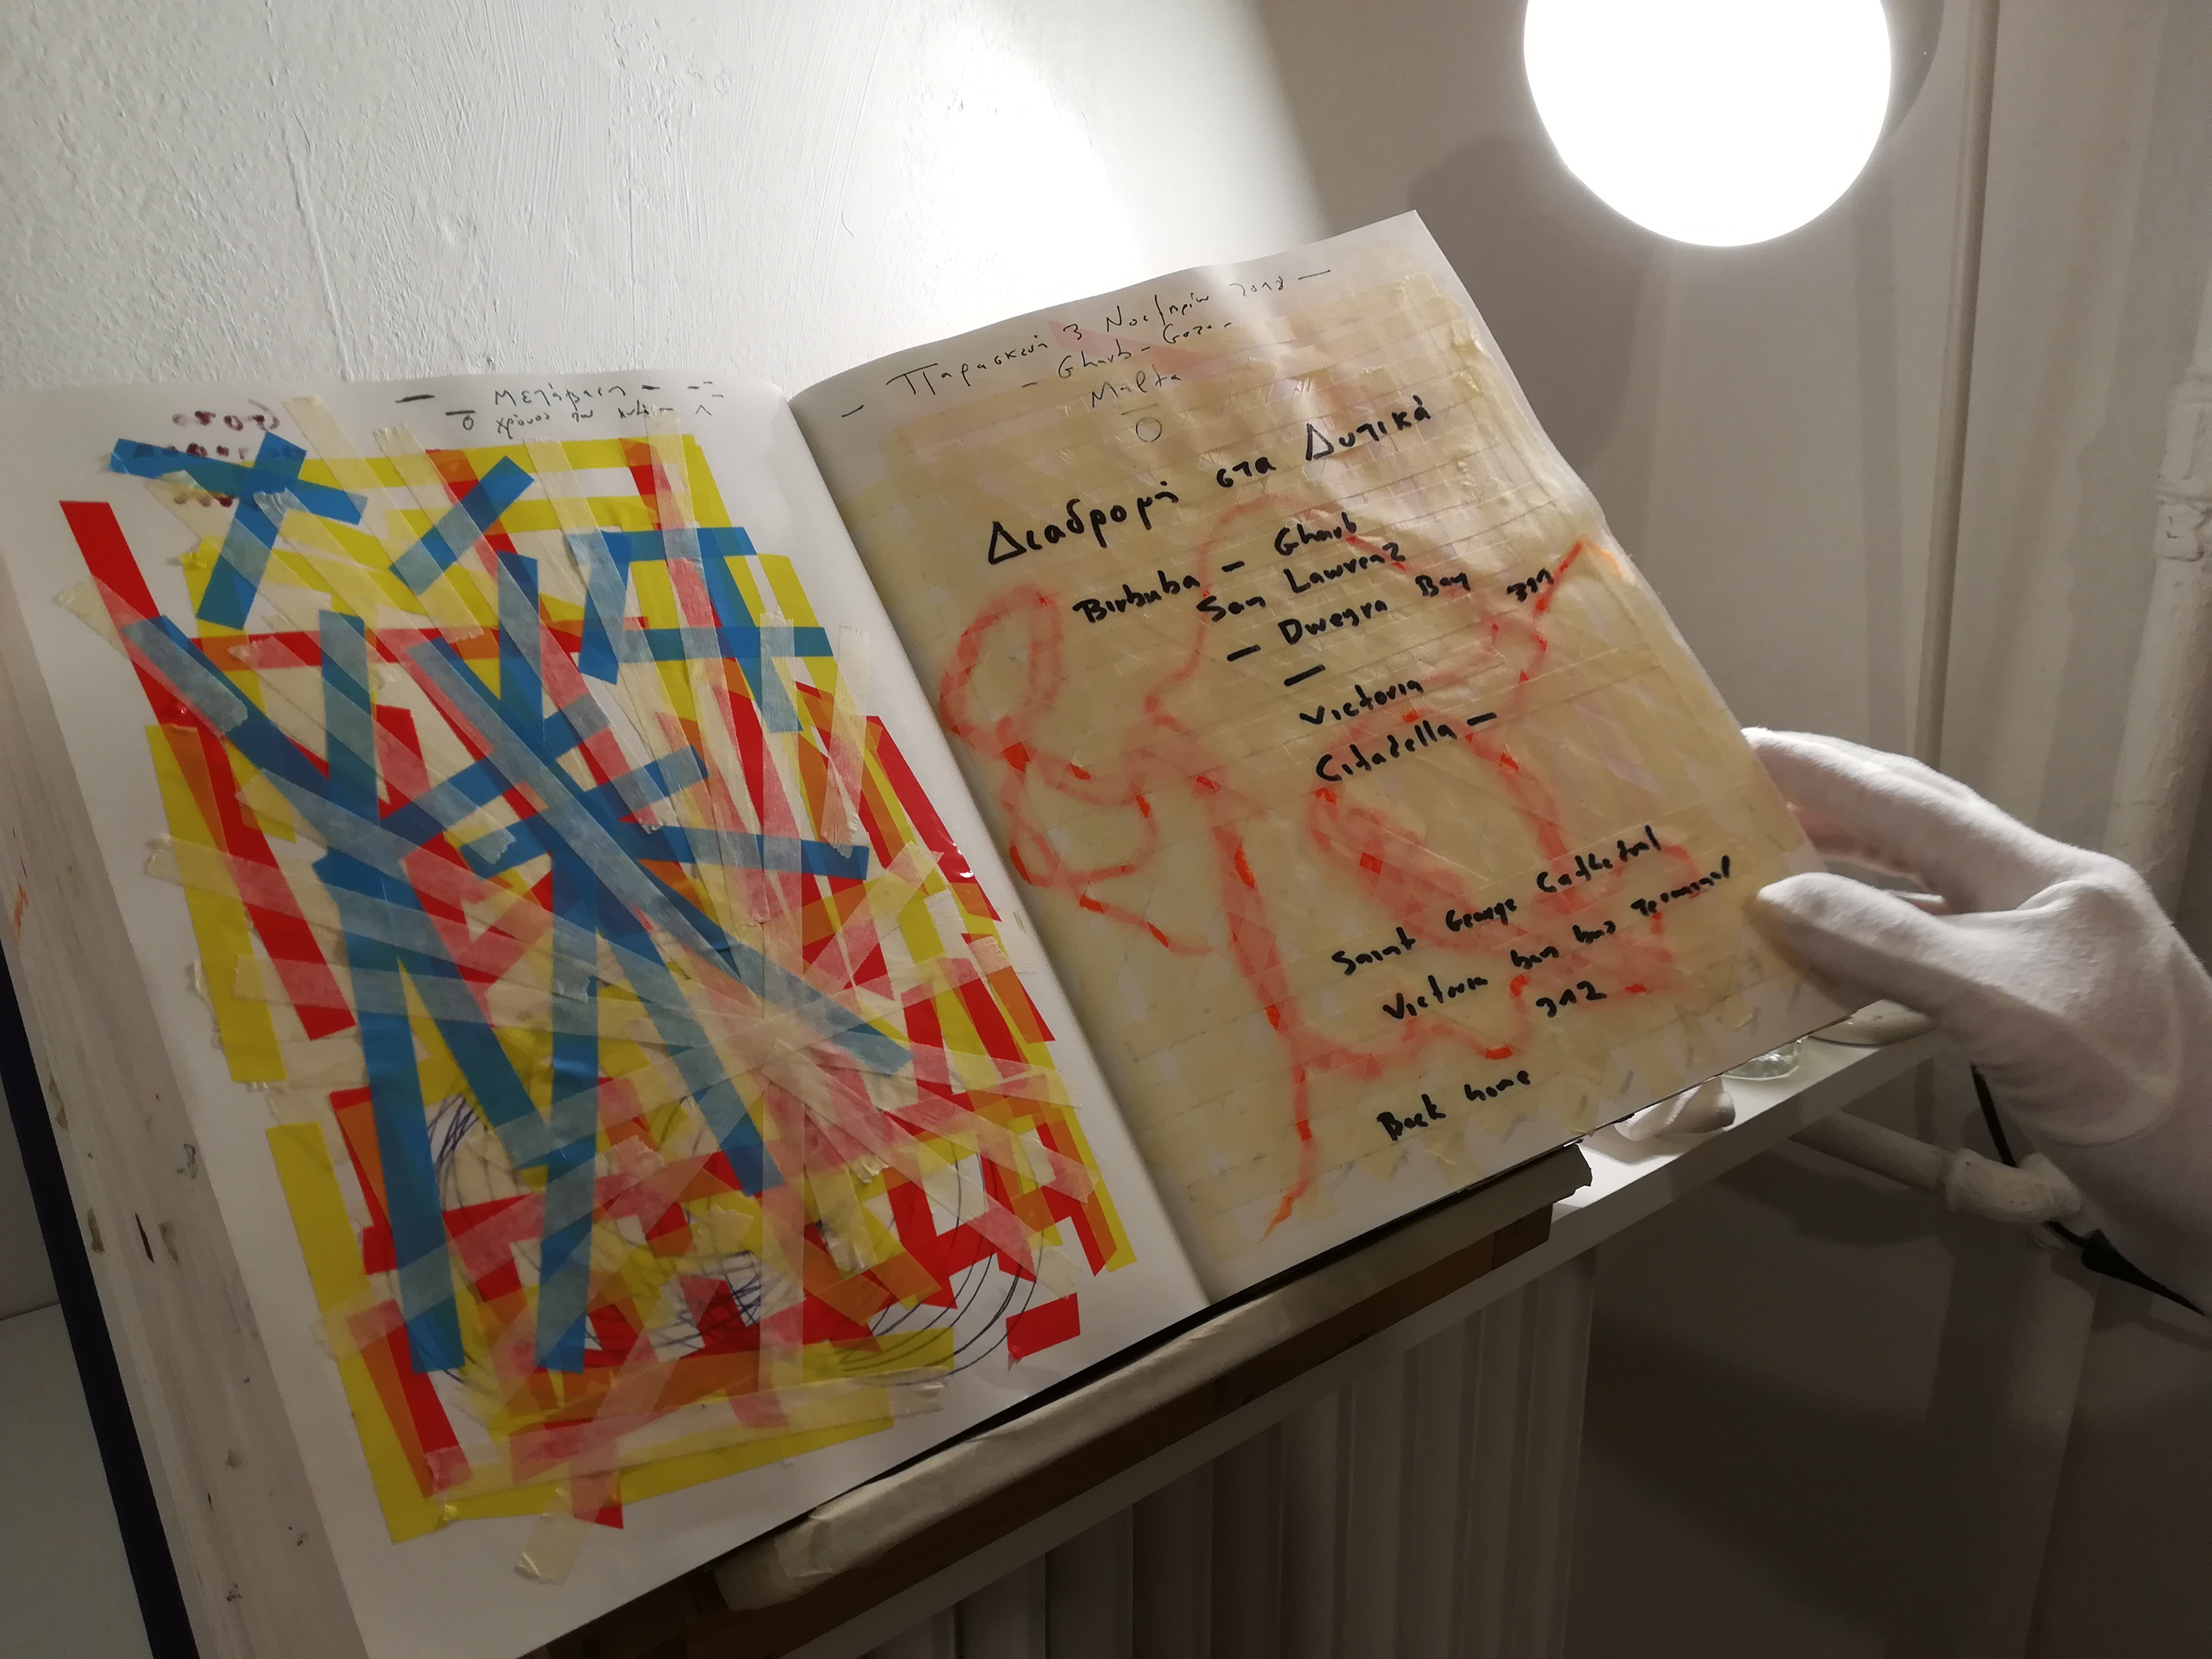 — Μετάβαση —
Ο χρόνος των
— Παρασκευή 3 Νοεμβρίου 2018 —
— Gharb – Gozo –
Malta
Διαδρομή στα Δυτικά
Birbuba — Gharb
San Lawrenz
— Dwejra Bay 311
—
Victoria
Citadella —
Saint George Cathedral
Victoria bus bus Terminal
312
Back home